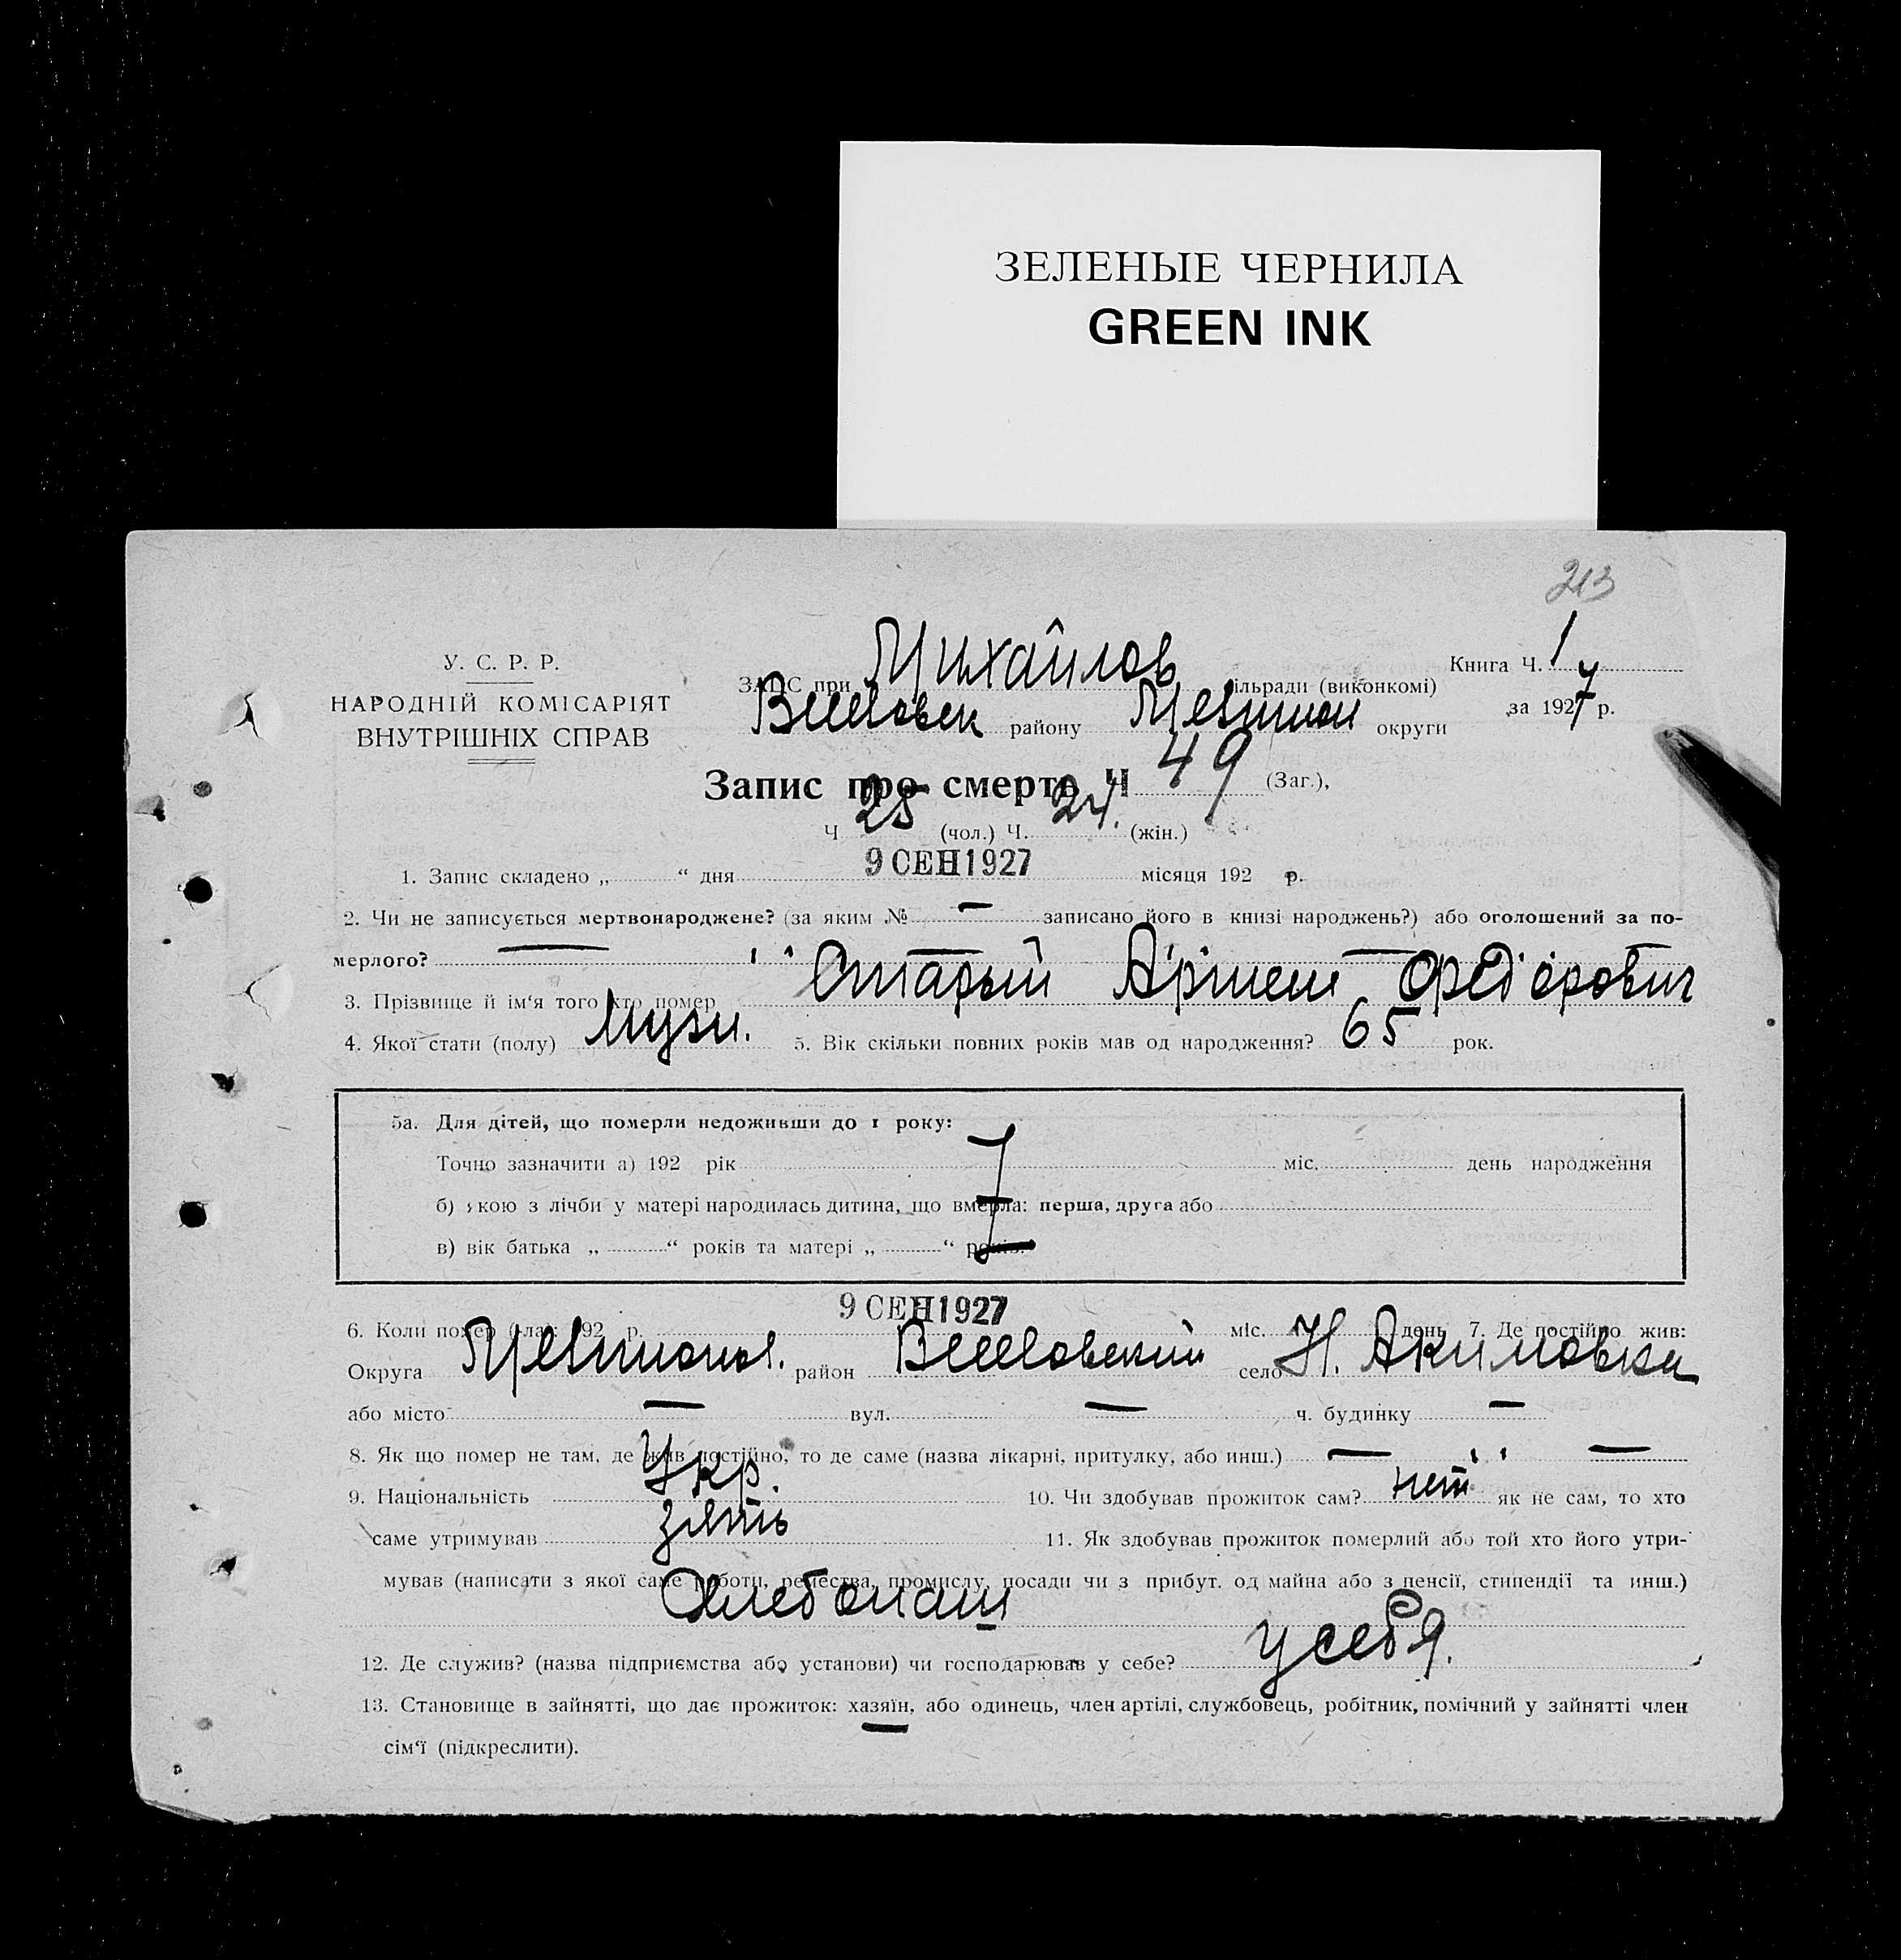 ЗЕЛЕНЫЕ ЧЕРНИЛА
GREEN INK
213
У. С. Р. Р.
НАРОДНІЙ КОМІСАРІЯТ
ВНУТРІШНІХ СПРАВ
ЗАПИС при Михайлов сільради (виконкомі)
Книга Ч. 1
Веселовск району Мелитоп округи
за 1927 р.
Запис про смерть Ч 49 (Заг.),
Ч 25 (чол.) Ч. 24. (жін.)
1. Запис складено „ “ дня 9 СЕН 1927 місяця 192 р.
2. Чи не записується мертвонароджене? (за яким № — записано його в книзі народжень?) або оголошений за по-
мерлого? —
3. Прізвище й ім‘я того хто помер Старый Федорович
4. Якої стати (полу) мужч. 5. Вік скільки повних років мав од народження? 65 рок.
5а. Для дітей, що померли недоживши до 1 року:
Точно зазначити а) 192 рік міс. день народження
б) якою з лічби у матері народилась дитина, що вмерла: перша, друга або
в) вік батька „ “ років та матері „ “ років.
6. Коли помер (ла): 192 р. 9 СЕН 1927 міс. день 7. Де постійно жив:
Округа Мелитопол. район Веселовский село Н. Акимовка
або місто — вул. — ч. будинку —
8. Як що помер не там, де жив постійно, то де саме (назва лікарні, притулку, або инш.) — " —
9. Національність Укр. 10. Чи здобував прожиток сам? нет як не сам, то хто
саме утримував зять 11. Як здобував прожиток померлий або той хто його утри-
мував (написати з якої саме роботи, ремества, промислу, посади чи з прибут. од майна або з пенсії, стипендії та инш.)
Хлебопаш
12. Де служив? (назва підприємства або установи) чи господарював у себе? у себя.
13. Становище в зайнятті, що дає прожиток: хазяїн, або одинець, член артілі, службовець, робітник, помічний у зайнятті член
сім‘ї (підкреслити).